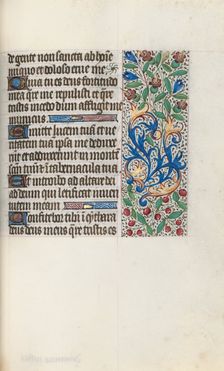 de gente non sancta ab homine
iniquo et doloso erue me
Quia tu es deus fortitudo
mea quare me repulisti et qua
tristis incedo dum affligit me
inimicus
Emitte lucem tuam et ue
ritatem tuam ipsa me deduxe
runt et adduxerunt in montem
sanctum tuum et in tabernacula tua
Et introibo ad altare dei
ad deum qui letificat iuuen
tutem meam
Confitebor tibi in cythara
deus deus meus quare tristis es